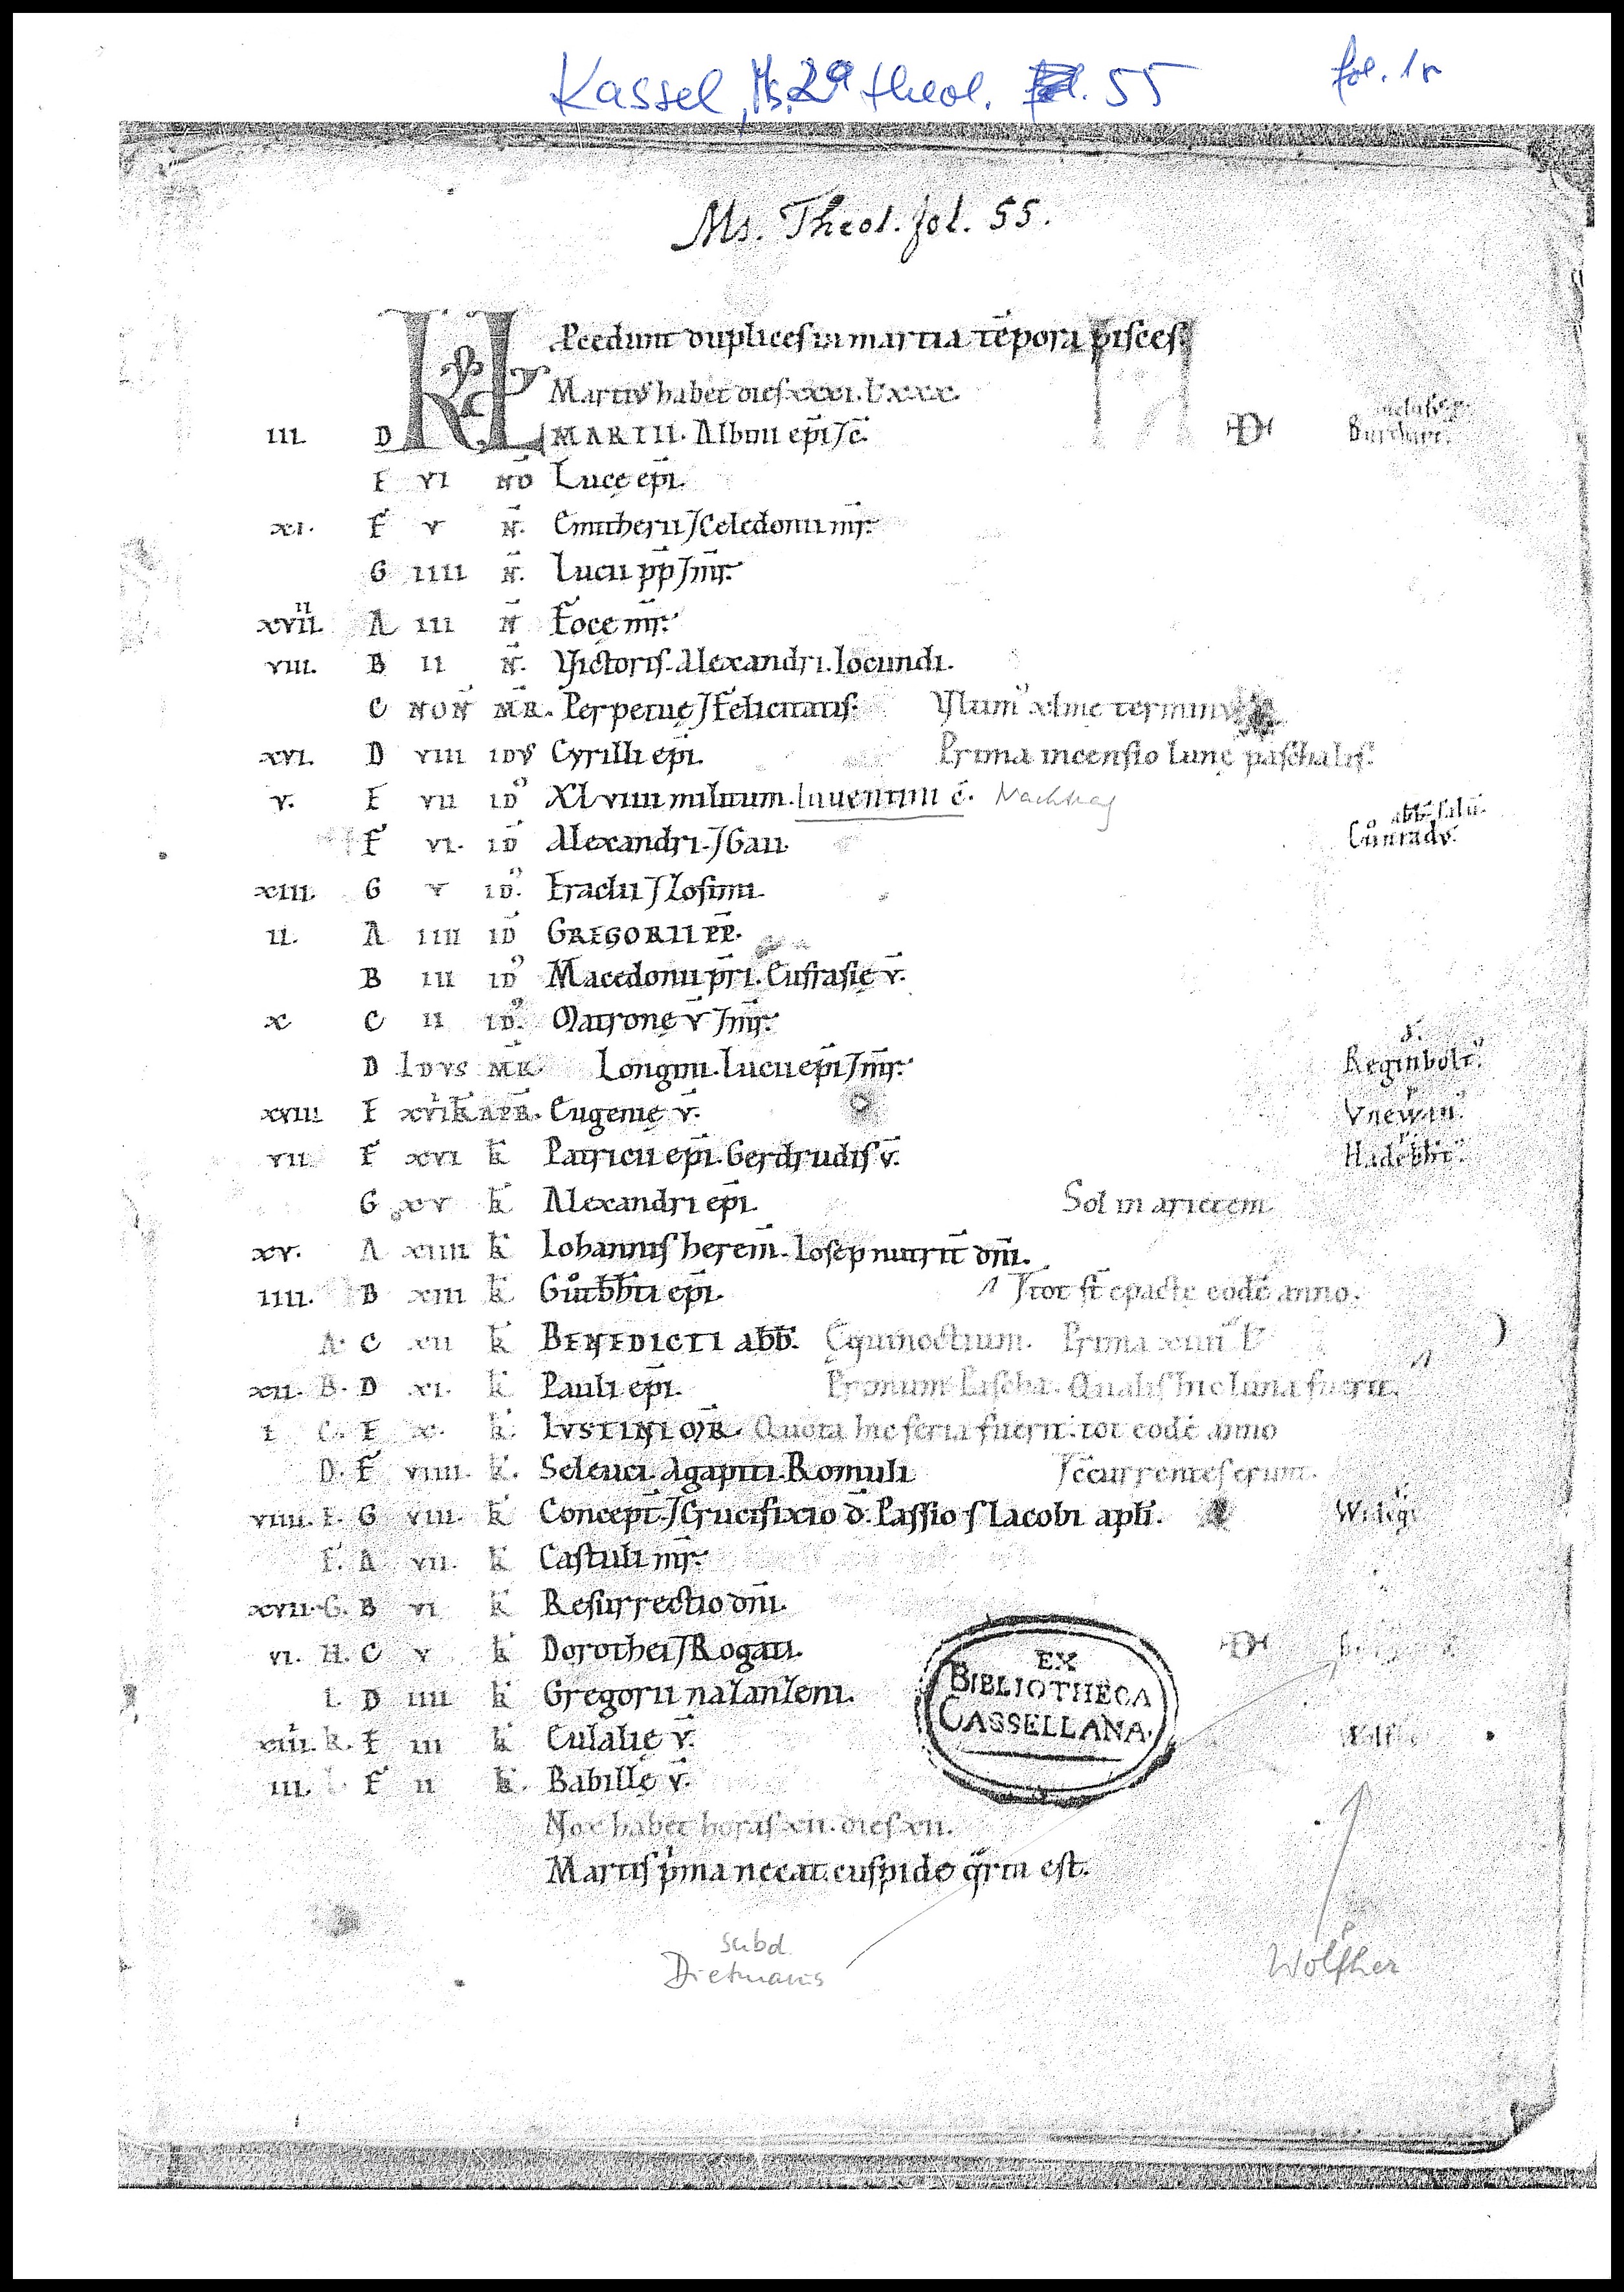 Kassel, Ms. 2° theol. 55 fol. 1r
Ms. Theol. fol. 55.
KL Pcedunt duplices in martia tēpora pisces.
Martius habet dies xxxi. L̄ xxx.
III. D MARTII. Albini ep̄i ⁊ c̄.
Burchart
E VI NŌ Lucę ep̄i.
XI. F V N̄. Emitherii ⁊ Celedonii mr̄.
G IIII N̄. Lucii pp̄ ⁊ mr̄.
XVIIII A III N̄ Focę mr̄.
VIII. B II N̄. Victoris. Alexandri. Iocundi.
C NON̄ MR̄. Perpetuę ⁊ Felicitatis. Vltim᾽ xlmę terminus
XVI. D VIII IDVS Cyrilli ep̄i. Prima incensio lunę paschalis.
V. E VII ID᾽ XLVIIII militum. Iuuentini c̄. Nachtrag
F VI. ID̄ Alexandri ⁊ Gaii. Cůnradus.
XIII. G V ID᾽. Eraclii ⁊ Zosimi.
II. A IIII ID̄ GREGORII PP̄.
B III ID᾽ Macedonii pr̄i. Eufrasię v̄.
X C II ID᾽. Matronę v̄ ⁊ mr̄.
D IDVS MR̄. Longini. Lucii ep̄i ⁊ mr̄. Reginbolt᾽.
XVIII E XVII K̄ APR̄. Eugenię v̄. Vnewan᾽.
VII F XVI k̄ Patricii ep̄i. Gerdrudis v̄.
G XV k̄ Alexandri ep̄i. Sol in arietem.
XV. A XIIII k̄ Iohannis herem̄. Iosep nutrit̄ dn̄i.
IIII. B XIII k̄ Gůtb̄hti ep̄i. ⁊ tot st̄ epactę eodē anno.
A. C XII k̄ BENEDICTI abb̄. Ęquinoctium. Prima XIIII L̄
XII. B. D XI. k̄ Pauli ep̄i. Primum Pascha. Qualis hic luna fuerit.
I C. E X. k̄. IVSTINI MR̄. Quota hic feria fuerit: tot eodē anno
D. F VIIII. k̄. Seleuci. Agapiti. Romuli ⁊ c̄currentes erunt.
VIIII. E. G VIII. k̄ Concept̄. ⁊ Crucifixio d̄. Passio s̄ Iacobi apl̄i.
F. A VII. k̄ Castuli mr̄.
XVII. G. B VI k̄ Resurrectio dn̄i.
VI. H. C V k̄ Dorothei ⁊ Rogati.
I. D IIII k̄ Gregorii nazanzeni.
XIIII. K. E III k̄ Eulalię v̄.
III. L F II k̄. Babillę v̄.
EX
BIBLIOTHECA
CASSELLANA.
Nox habet horas XII. dies XII.
Martis p̄ma necat. cuspide q̄rta est.
subd.
Dietmarus
p
Wolfher